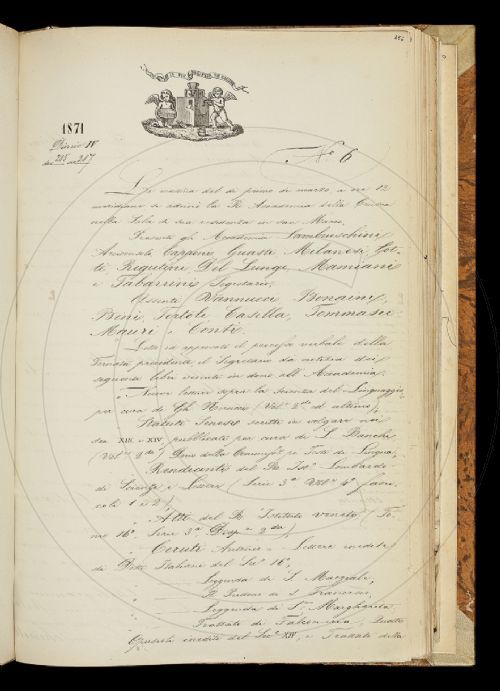 1871
Diario IV
da 285 a 287
N.º 6
La mattina del dì primo di marzo, a ore 12
meridiane si adunò la R. Accademia della Crusca
nella Sala di sua residenza in San Marco.
Presenti gli Accademici Lambruschini
Arciconsolo, Capponi, Guasti, Milanesi, Tor-
ti, Rigutini, Del Lungo, Mamiani
e Tabarrini Segretario.
Assenti Vannucci, Bonaini,
Bini, Tortoli, Casella, Tommaseo
Mauri e Conti.
Letto ed approvato il processo verbale della
Tornata precedente, il Segretario dà notizia dei
seguenti libri venuti in dono all'Accademia.
Nuove letture sopra la scienza del Linguaggio
per cura di G. Nerucci (Vol.º 2.do ed ultimo);
Statuti Senesi scritti in volgare nei
secoli XIII e XIV pubblicati per cura di L. Banchi
(Vol.º 2.do) Dono della Commiss.e pe' Testi di Lingua,
Rendiconti del R. Ist.º Lombardo
di Scienze e Lettere (Serie 3.ª Vol.º 4.º fasci-
coli 1 e 2),
Atti del R. Istituto Veneto (To-
mo 16.º Serie 3.ª Disp.a 2.da)
Ceruti Antonio - Lettere inedite
di Dotti Italiani del Sec.º 16.º,
Leggenda di S.
di S. Francesco,
Leggenda di S.ta Margherita,
Trattato di Falconeria,
Operetta inedita del Sec.º XIV, e Trattato della